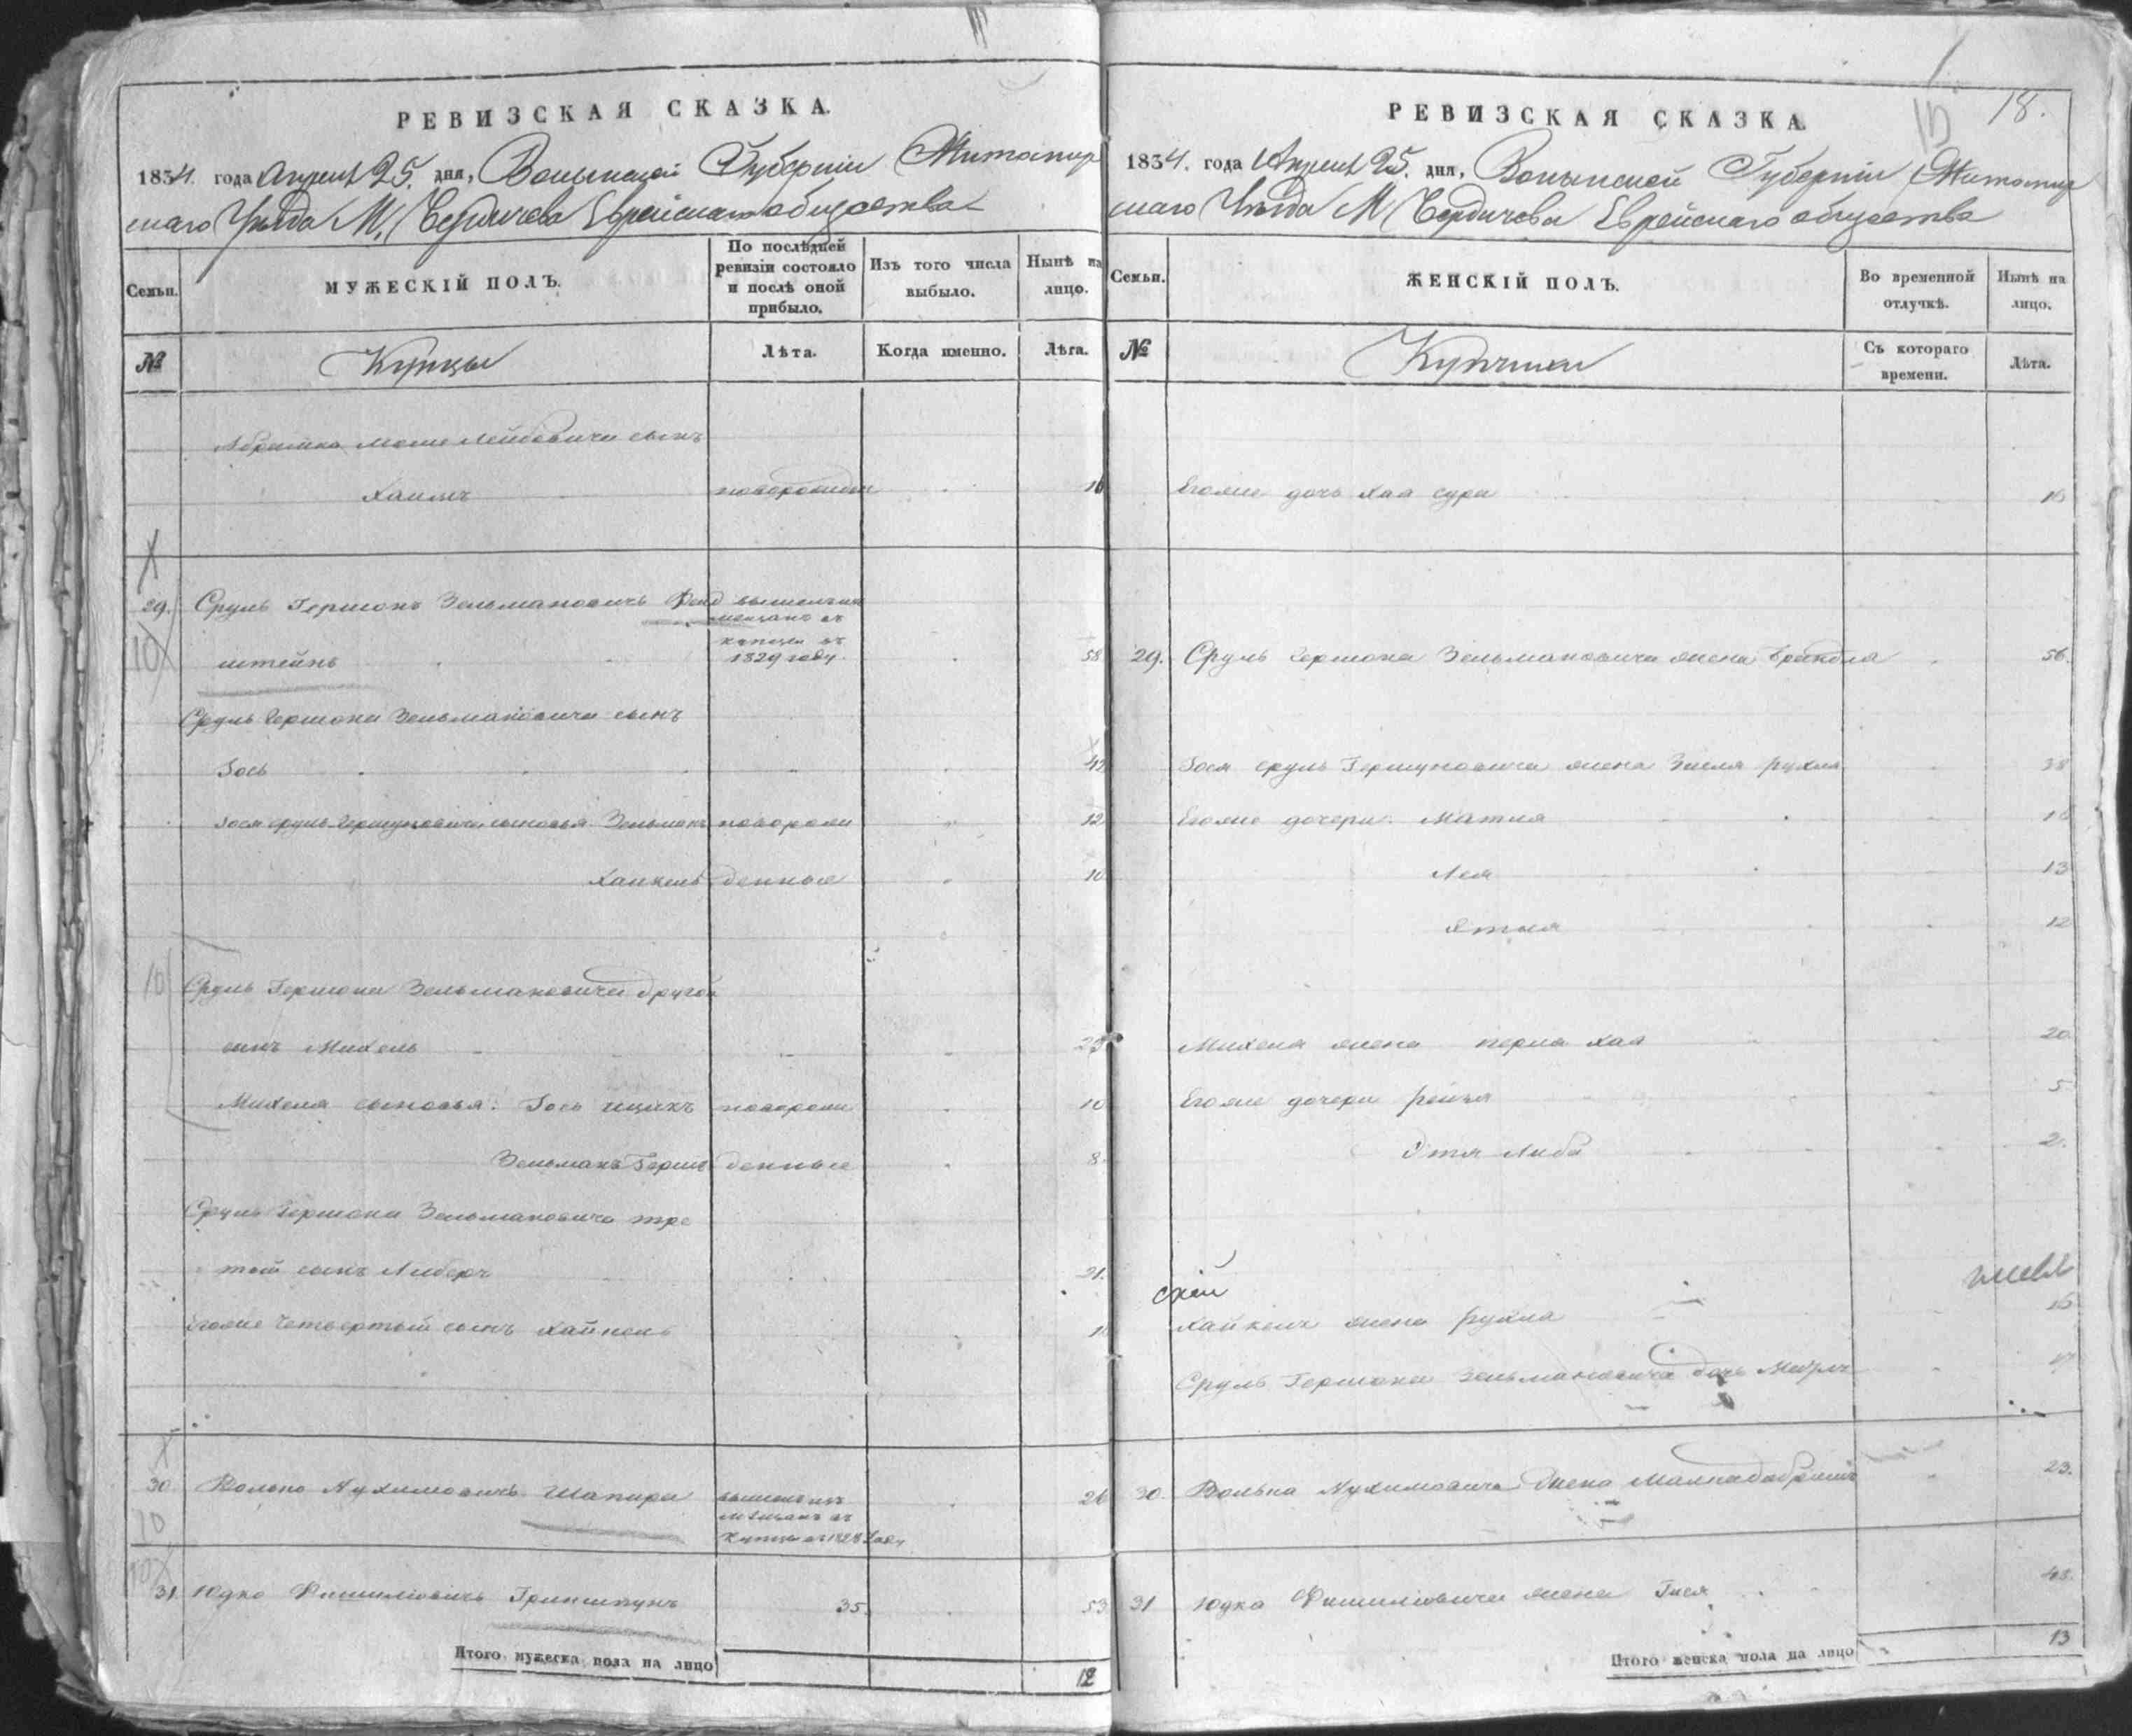 18.
РЕВИЗСКАЯ СКАЗКА.
1834. года Апреля 25. дня, Волынской Губерніи Житомир
скаго Уезда М. Бердичева Еврейскаго общества
Семьи.
МУЖЕСКІЙ ПОЛЪ.
По послѣдней ревизіи состояло и послѣ оной прибыло.
Изъ того числа выбыло.
Нынѣ на лицо.
№
Купцы
Лѣта.
Когда именно.
Лѣта.
Абрамка Моше Лейбовича сынъ
Хаимъ новорожден 16
29. Сруль Гершонъ Зельмановичъ Фенд вышелъ изъ
мещанъ въ
купцы въ
штейнъ 1829 году. 58
Сруль Гершона Зельмановича сынъ
Іось 42
Іося Сруль Гершуновича сыновья Зельманъ новорож 12
Хайкель денные 10
10 Сруль Гершона Зельмановича другой
сынъ Михель
Михеля сыновья: Іось Ицикъ новорож 10
Зельманъ Герш денные 8
Сруль Гершона Зельмановича тре
тій сынъ Либеръ 21.
Егоже четвертый сынъ Хайкель
30 Волько Нухимовичъ Шапира вышелъ изъ 26
10 мещанъ въ
купцы въ 1828 году
31 Юдко Фишиліовичъ Гриншпунъ 35. 53
Итого мужеска пола на лицо 12
РЕВИЗСКАЯ СКАЗКА.
1834. года Апреля 25. дня, Волынской Губерніи Житомир
скаго Уезда М Бердичева Еврейскаго общества
Семьи.
ЖЕНСКІЙ ПОЛЪ.
Во временной отлучкѣ.
Нынѣ на лицо.
№
Купчихи
Съ котораго времени.
Лѣта.
Егоже дочь Хая Сура
29. Сруль Гершона Зельмановича жена Брейндля 56.
Іося Сруль Гершуновича жена Зисля Рухля 38
Егоже дочери: Матля 16
Лея 13
Этля 12
Михеля жена Перла Хая 20
Егоже дочери Рейзя 5
Этя Либа 2.
Хайкель жена Рухля
Сруль Гершона Зельмановича дочь
30. Волька Нухимовича жена 23.
31 Юдка Фишиліовича жена Гися 48.
Итого женска пола на лицо 13